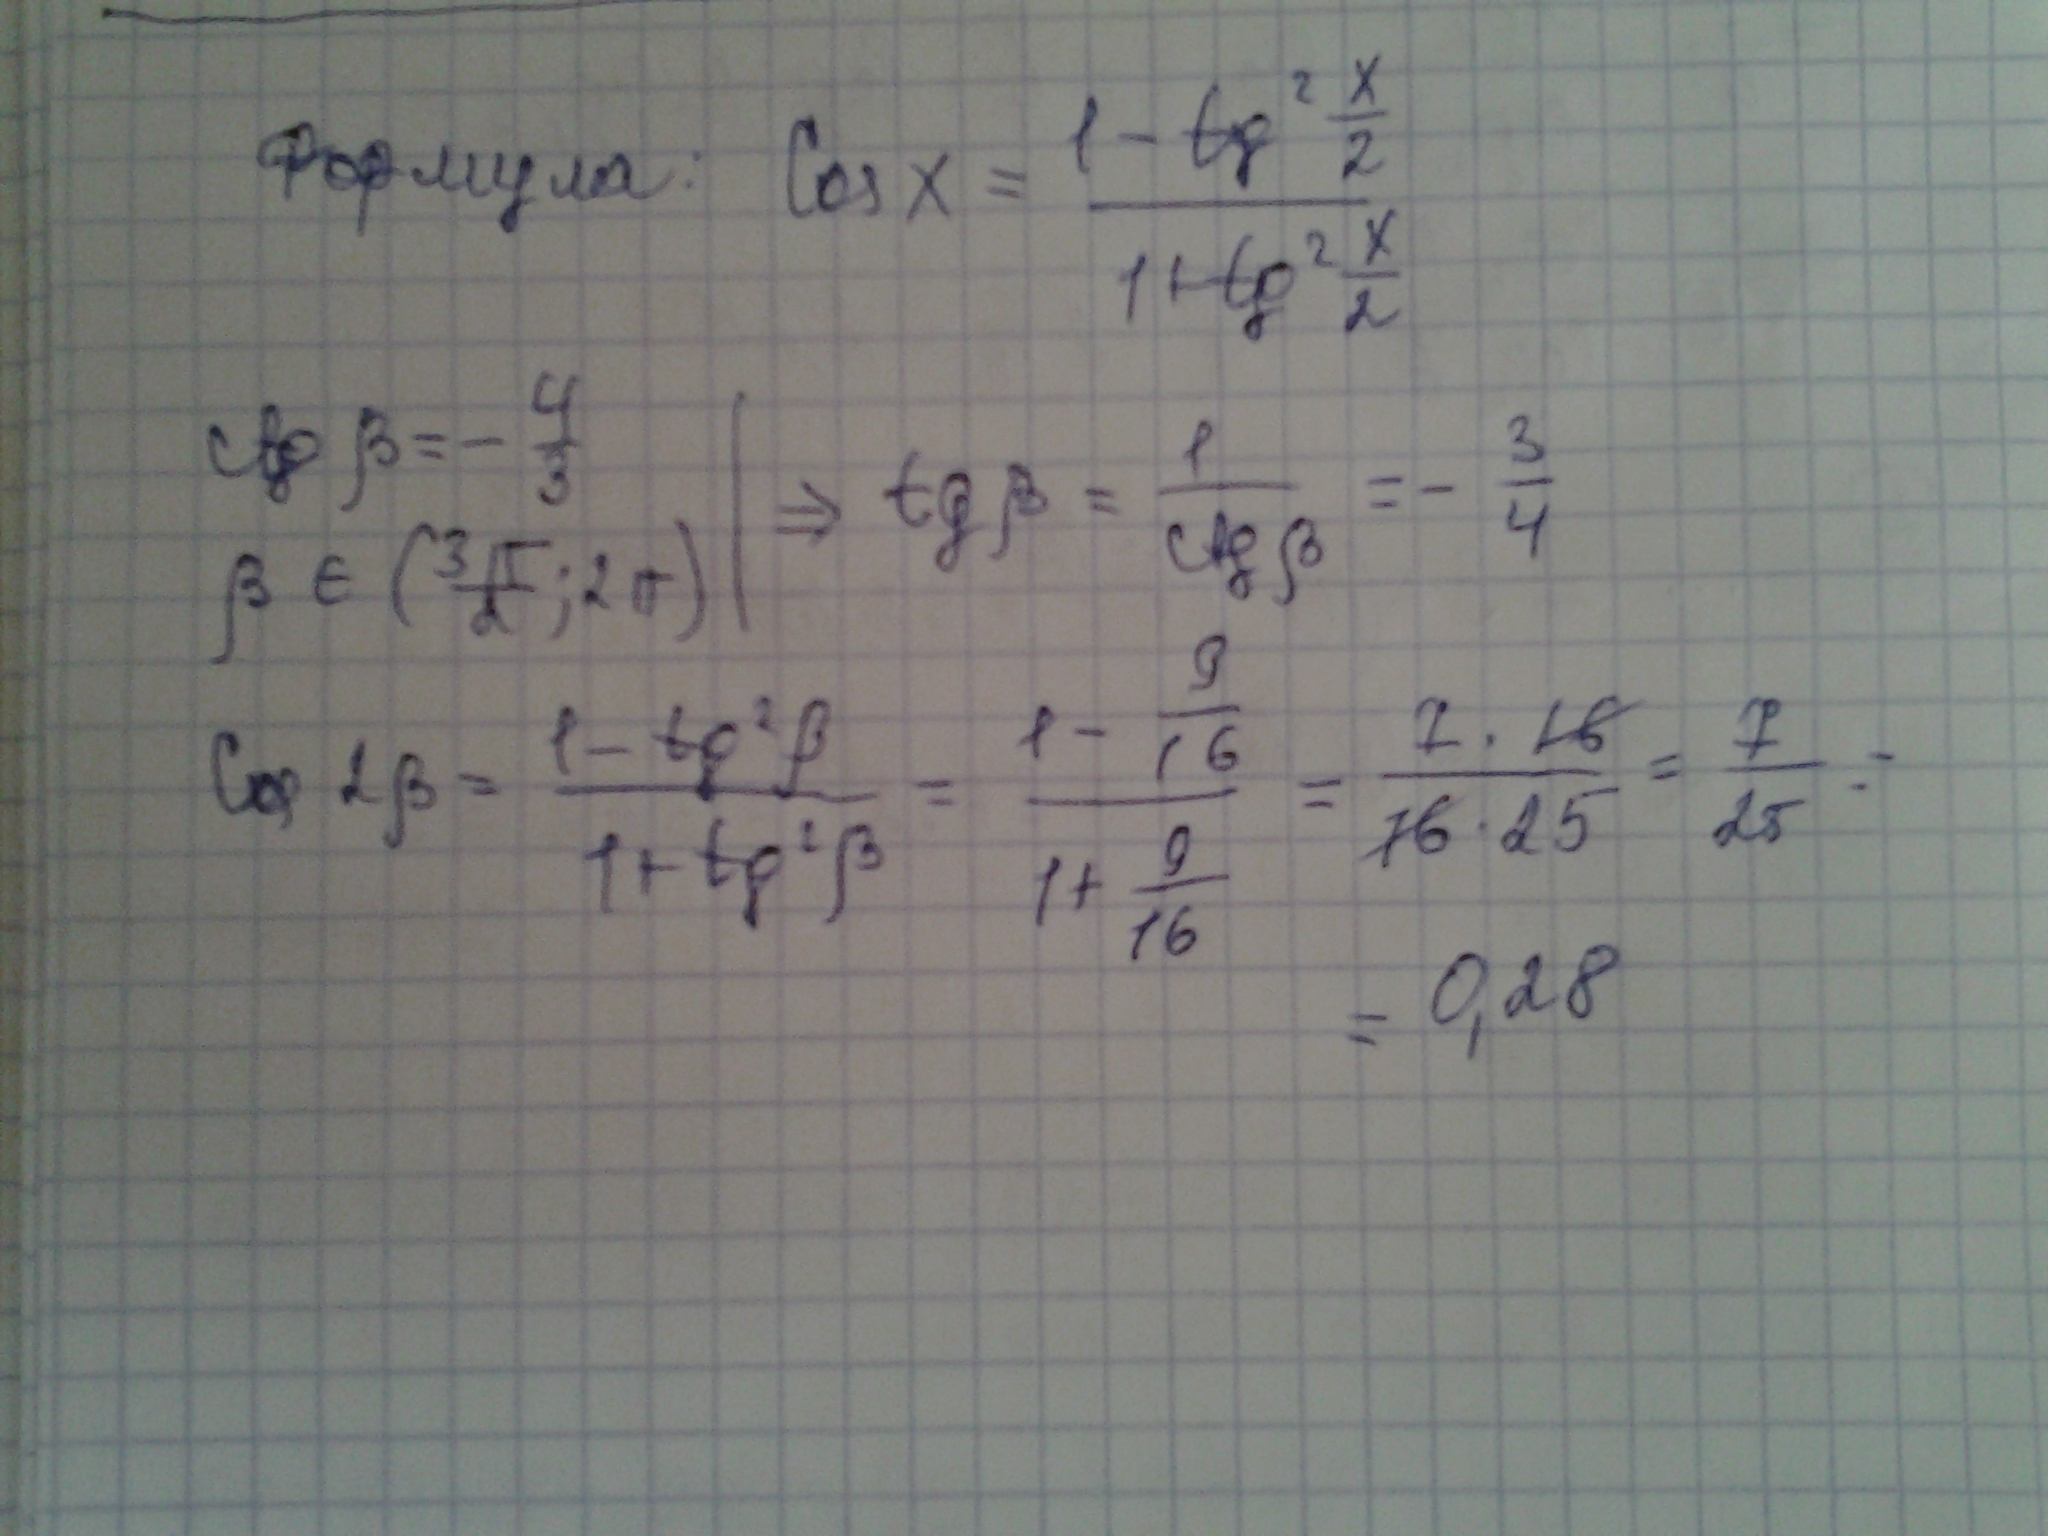 Формула: Cos x = \frac{1 - tg^2 \frac{x}{2}}{1 + tg^2 \frac{x}{2}}
ctg β = - \frac{4}{3}
β ∈ (\frac{3π}{2}; 2π) | ⇒ tg β = \frac{1}{ctg β} = - \frac{3}{4}
Cos 2β = \frac{1 - tg^2 β}{1 + tg^2 β} = \frac{1 - \frac{9}{16}}{1 + \frac{9}{16}} = \frac{7 · 16}{16 · 25} = \frac{7}{25} =
= 0,28